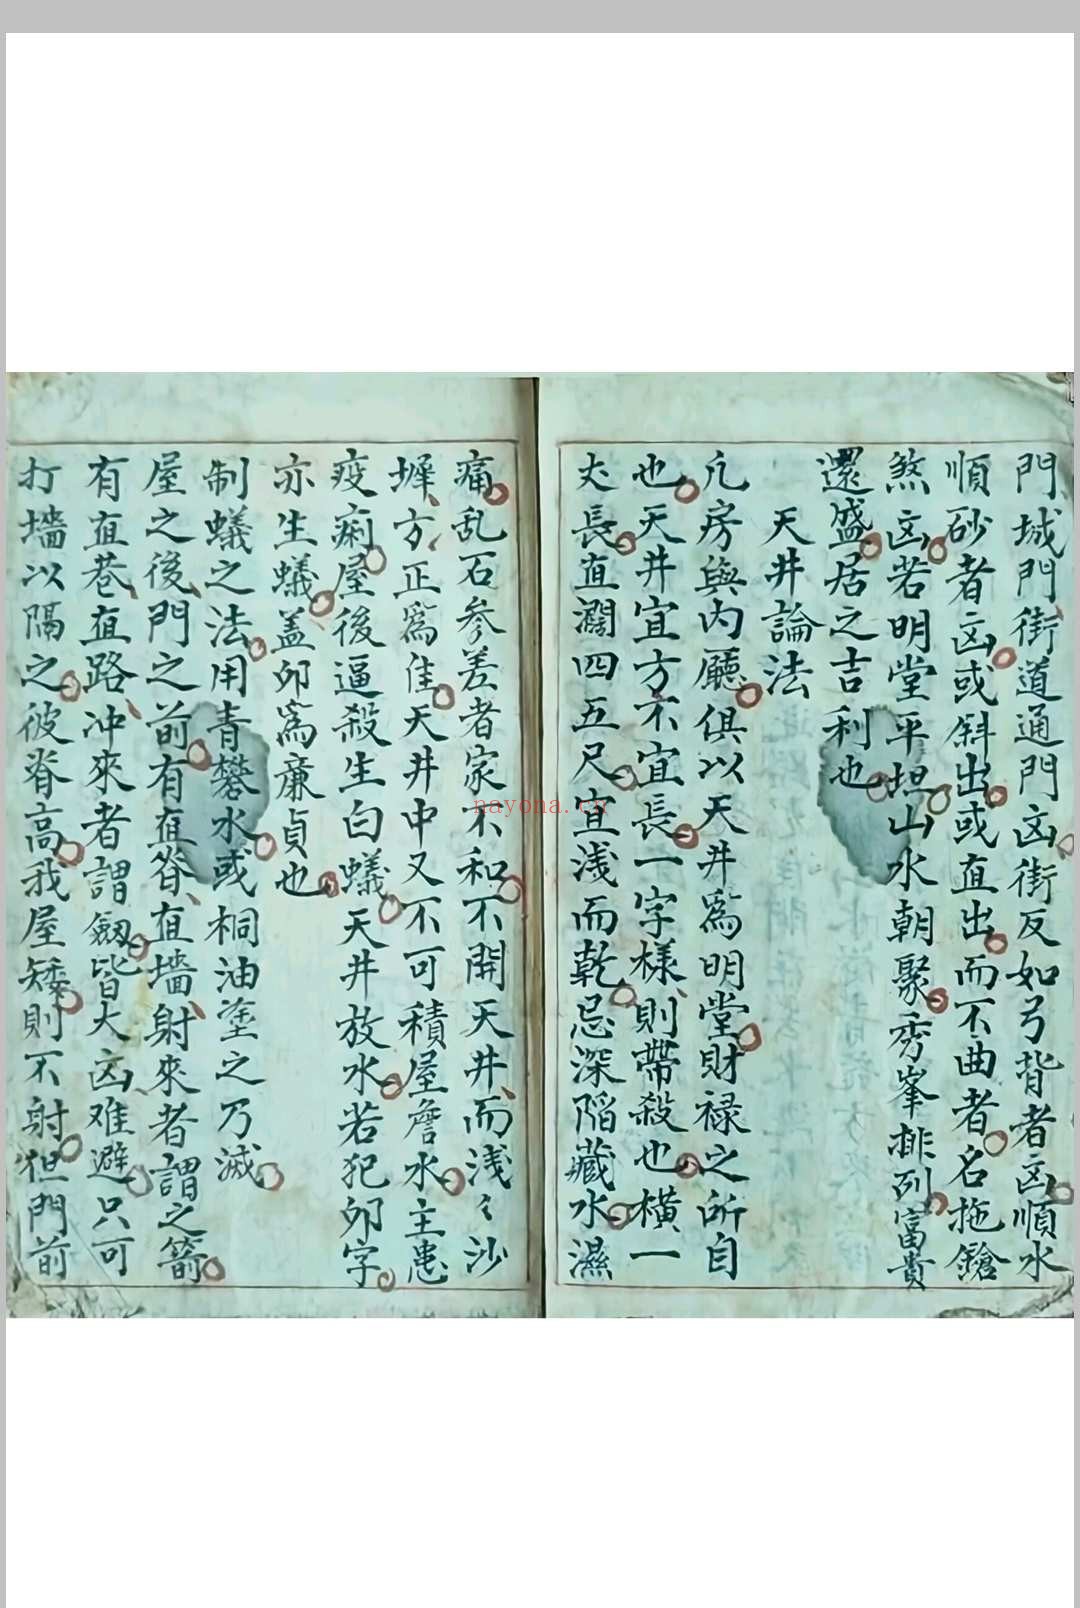 門城門街道通門凶街反如弓背者凶順水
順砂者凶或斜出或直出而不曲者名拖鎗
煞凶若明堂平坦山水朝聚秀峯排列富貴
還盛居之吉利也
天井論法
凢房與内廳俱以天井爲明堂財禄之所自
也天井宜方不宜長一字様則帶殺也横一
丈長直濶四五尺宜浅而乾忌深陷藏水濕
痛乱石参差者家不和不開天井而浅々沙
墀方正爲佳天井中又不可積屋詹水主患
疫痢屋後逼殺生白蟻天井放水若犯卯字
亦生蟻盖卯爲廉貞也
制蟻之法用青礬水或桐油塗之乃滅
屋之後門之前有直脊直墻射來者謂之箭
有直巷直路冲來者謂劔皆大凶难避只可
打墻以隔之彼脊高我屋矮則不射但門前
nayona.cn